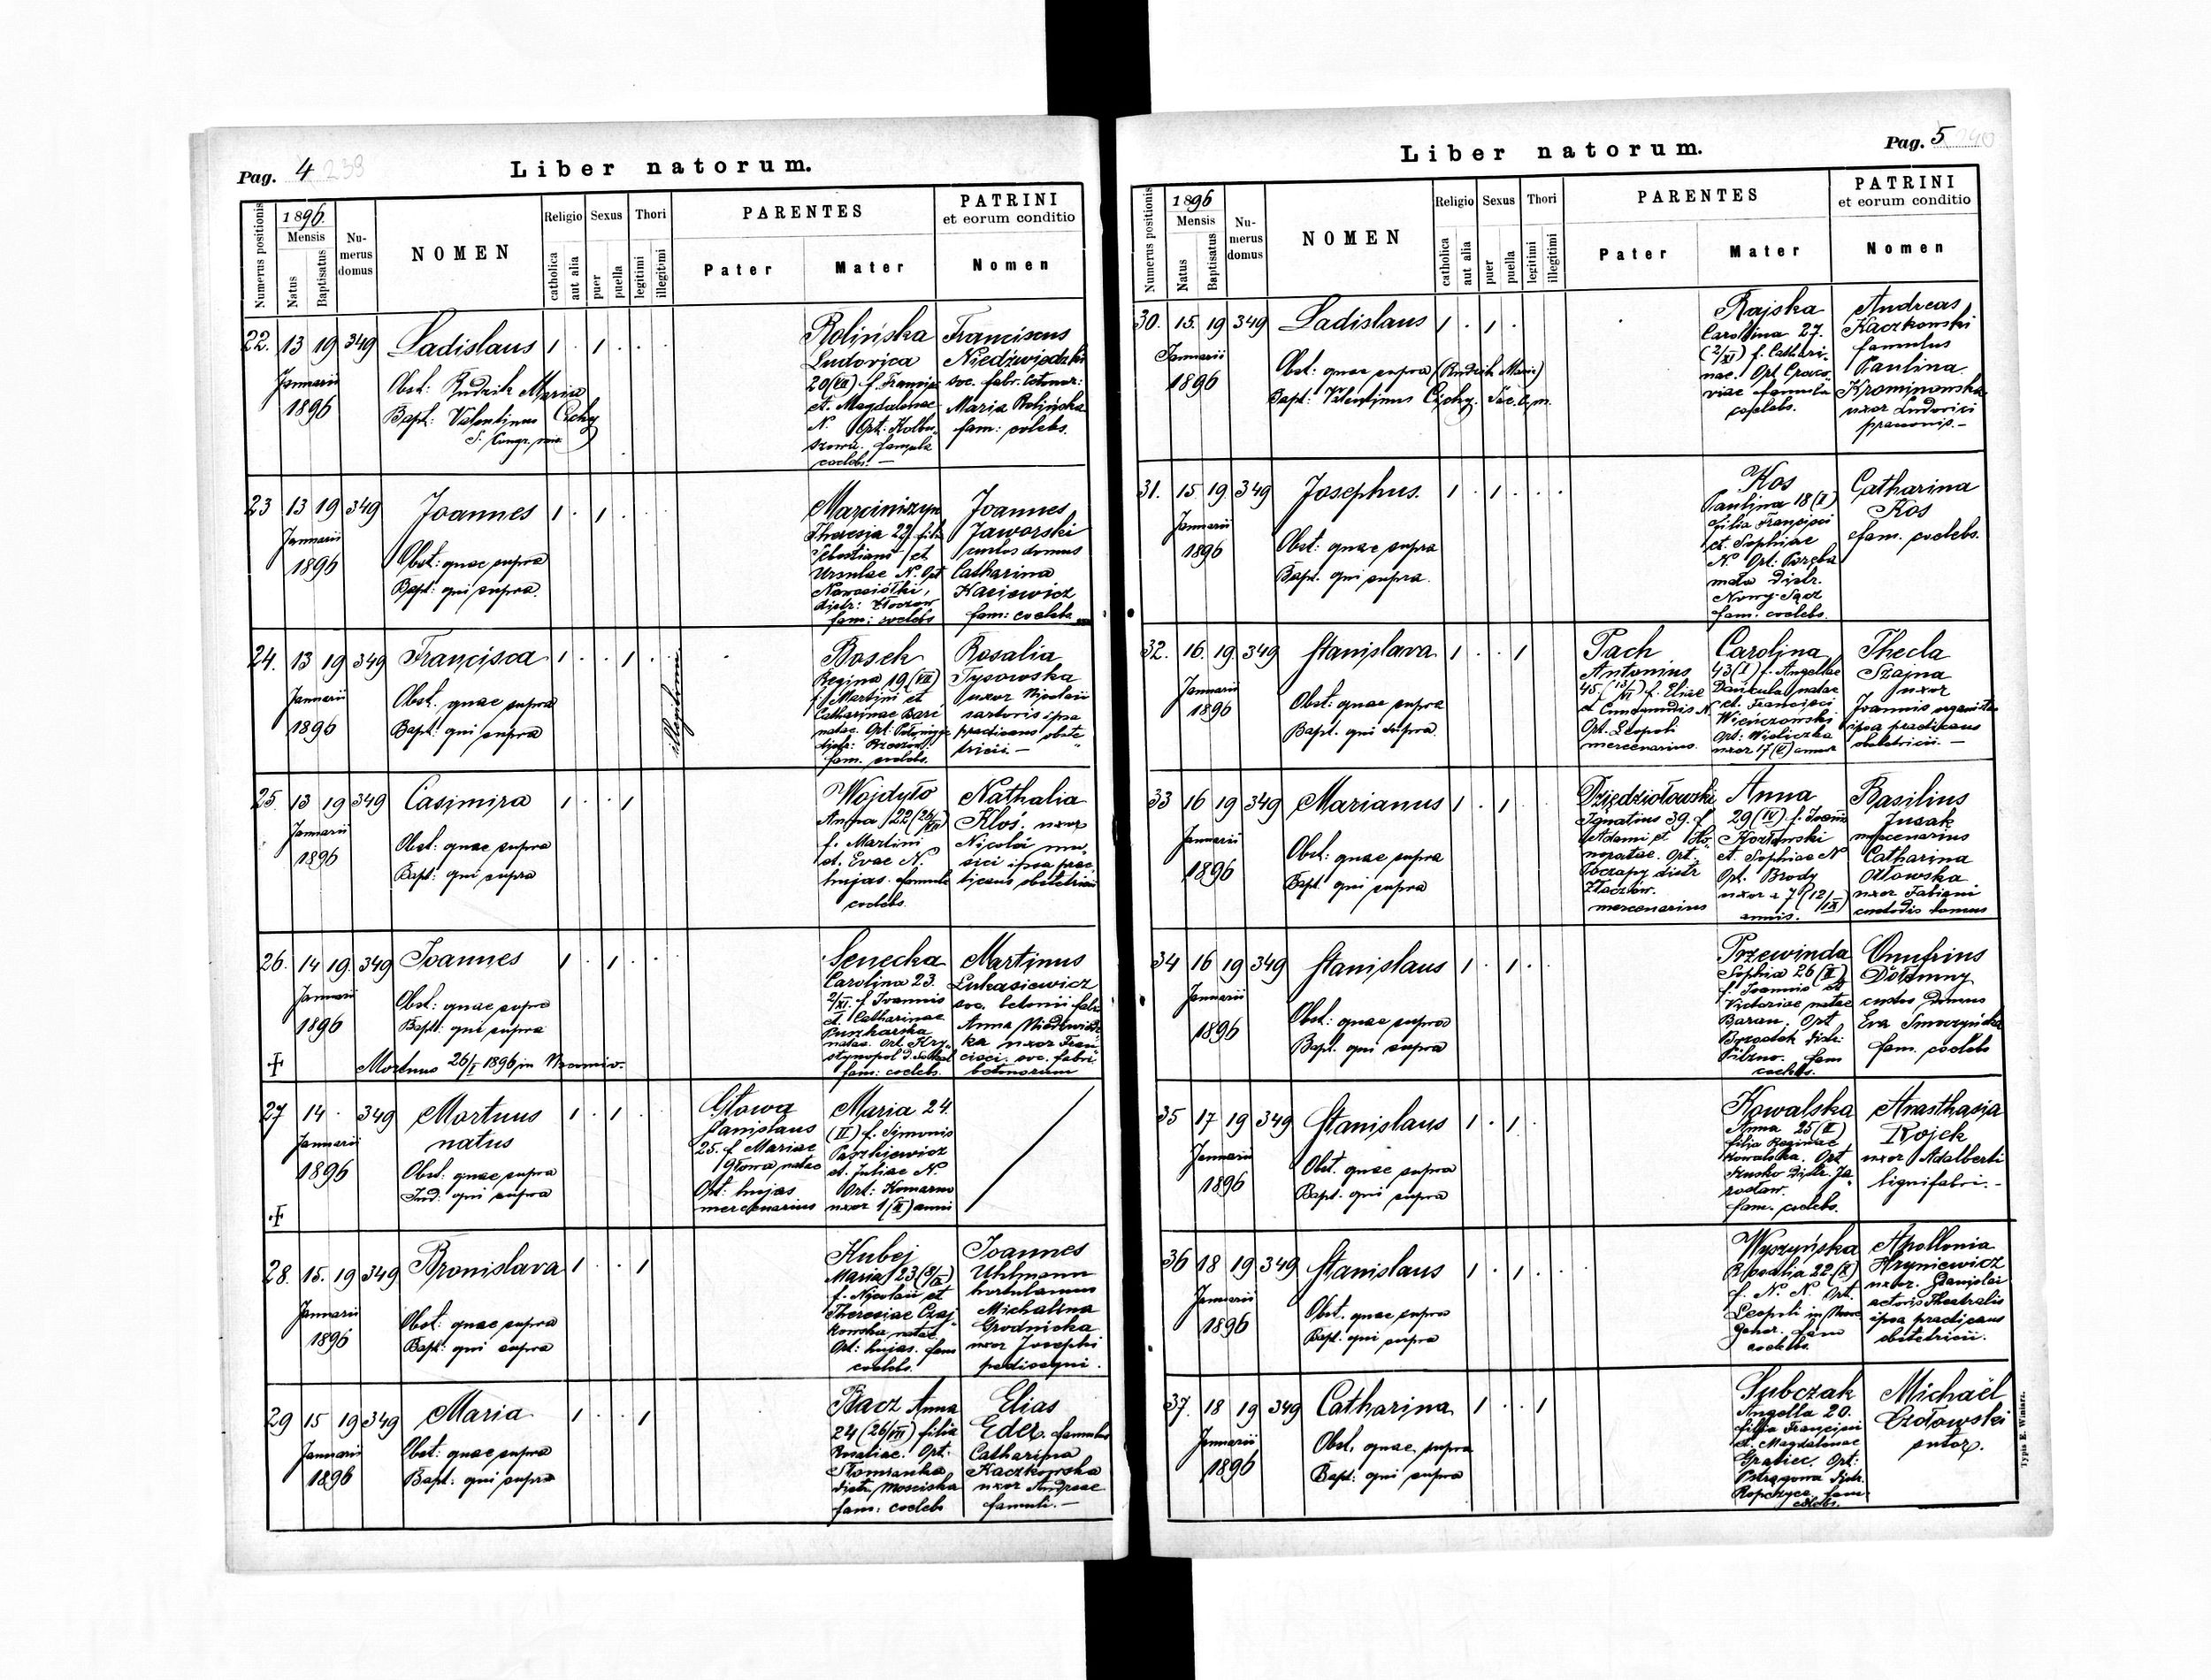 Pag. 4 239
Liber natorum.
Numerus positionis
1896.
Mensis
Natus
Baptisatus
Nu-
merus
domus
NOMEN
Religio
catholica
aut alia
Sexus
puer
puella
Thori
legitimi
illegitimi
PARENTES
Pater
Mater
PATRINI
et eorum conditio
Nomen
22. 13 19 349 Ladislaus 1 . 1 . . .
Januarii
1896
Obst: Rudzik Maria
Bapt: Valentinus Cichy
Rolińska
Ludovica
20 (VII) f. Francis.
et Magdalenae
N. Ort: Kolbu-
szowa. famula
coelebs. —
Franciscus
Niedźwiedzki
soc. fabr. betonar:
Maria Rolińska
fam: coelebs.
23 13 19 349 Joannes 1 . 1 .
Januarii
1896
Obst: quae supra
Bapt: qui supra.
Marciniszyn
Theresia 22 filia
Sebastiani et
Ursulae N. Ort
Nowosiółki,
distr: Złoczow
fam: coelebs
Joannes
Jaworski
custos domus
Catharina
Kasiewicz
fam: coelebs
24. 13 19 349 Francisca 1 . . 1 .
Januarii
1896
Obst. quae supra
Bapt: qui supra
illegitimi
Bosek
Regina 19 (VII)
f. Martini et
Catharinae
natae. Ort:
distr: Brzozow.
fam. coelebs.
Rosalia
Tysowska
uxor Nicolai
sartoris ipsa
practicans obste-
tricii. —
25. 13 19 349 Casimira 1 . . 1
Januarii
1896
Obst: quae supra
Bapt: qui supra
Wojdyło
Anna 22
f. Martini
et Evae N.
hujas. famula
coelebs.
Nathalia
Kloś. uxor
Nicolai mu-
sici ipsa prac-
ticans obstetricii
26. 14 19. 349 Joannes 1 . 1 . . .
Januarii
1896
Obst: quae supra
Bapt: qui supra
Mortuus 26/I 1896 in
Senecka
Carolina 23.
2/XI. f Joannis
et Catharinae
Puszkarska
natae. Ort. Kry-
stynopol d. Sokal
fam: coelebs.
Martinus
Lukasiewicz
soc. betonii fabr.
Anna Niedźwiedz-
ka uxor Fran-
cisci. soc. fabri
betonorum
27 14 . 349 Mortuus 1 . 1 .
natus
Januarii
1896
Obst. quae supra
Ind: qui supra
Głowa
Stanislaus
25. f Mariae
Głowa natae
Ort: hujas
mercenarius
Maria 24.
(II) f. Simonis
Paszkiewicz
et Juliae N.
Ort: Komarno
uxor 1 (II) anni
28. 15. 19 349 Bronislava 1 . . 1
Januarii
1896
Obst: quae supra
Bapt: qui supra
Kubej
Maria 23
f. Nicolai et
Theresiae Czaj-
kowska natae.
Ort: hujas. fam
coelebs.
Joannes
Uhlmann
hortulanus
Michalina
Grodnicka
uxor Josephi
pedissequi.
29 15 19 349 Maria 1 . . 1
Januarii
1896
Obst: quae supra
Bapt: qui supra
Bacz Anna
24 (26/VII) filia
Rosaliae. Ort.
Słomianka
distr: Mosciska
fam: coelebs
Elias
Eder. famulus
Catharina
Kaczkowska
uxor Andreae
famuli. —
Liber natorum.
Pag. 5
Numerus positionis
1896
Mensis
Natus
Baptisatus
Nu-
merus
domus
NOMEN
Religio
catholica
aut alia
Sexus
puer
puella
Thori
legitimi
illegitimi
PARENTES
Pater
Mater
PATRINI
et eorum conditio
Nomen
30. 15. 19 349 Ladislaus 1 . 1 .
Januarii
1896
Obst: quae supra (Rudzik Maria)
Bapt: Valentinus Cichy.
Rajska
Carolina 27.
(2/XI) f. Cathari-
nae. Ort Craco-
viae famula
coelebs.
Andreas
Kaczkowski
famulus
Paulina
Krominowska
uxor Ludovici
praeconis. —
31. 15. 19. 349 Josephus. 1 . 1 . . .
Januarii
1896
Obst: quae supra
Bapt. qui supra.
Kos
Paulina 18 (I)
filia Francisci
et Sophiae
N. Ort: Poręba
mała distr.
Nowy-Sącz
fam: coelebs.
Catharina
Kos
fam. coelebs.
32. 16. 19. 349 Stanislava 1 . . 1
Januarii
1896
Obst: quae supra
Bapt. qui supra
Pach
Antonius
45 f. Eliae
et Cunegundis N.
Ort. Leopoli
mercenarius.
Carolina
43 (I) f. Angellae
Dankula natae
et Francisci
Wienczowski
Ort: Wieliczka
uxor 17 annor
Thecla
Szajna
uxor
Joannis organistae
ipsa practicans
obstetricii. —
33 16 19 349 Marianus 1 . 1
Januarii
1896
Obst: quae supra
Bapt qui supra
Dziędziołowski
Ignatius 39. f
Adami et Ho-
noratae. Ort.
Poczapy distr
Złoczow.
mercenarius
Anna
29 (IV) f. Joann
Kozłowski
et Sophiae N
Ort. Brody
uxor a 7 (12/IX)
annis.
Basilius
Jusak
mercenarius
Catharina
Ozłowska
uxor Fabiani
custodis domus
34 16 19 349 Stanislaus 1 . 1 .
Januarii
1896
Obst: quae supra
Bapt. qui supra
Przewinda
Sophia 26 (II)
f. Joannis et
Victoriae natae
Baran. Ort
Brzostek distr:
Pilzno. fam
coelebs.
Onufrius
Dołamny
custos domus
Eva Smoczyńska
fam. coelebs
35 17 19 349 Stanislaus 1 . 1 .
Januarii
1896
Obst. quae supra
Bapt. qui supra
Kowalska
Anna 25 (II)
filia Reginae
Kowalska. Ort
distr. Ja-
rosław.
fam. coelebs.
Anasthasia
Rojek
uxor Adalberti
lignifabri. -
36 18 19 349 Stanislaus 1 . 1 . . .
Januarii
1896
Obst. quae supra
Bapt. qui supra
Wyszyńska
Rosalia 22 (X)
f. N. N. Ort.
Leopoli in
gener. fam
coelebs.
Apollonia
Hryniewicz
uxor Stanislai
actoris Theatralis
ipsa practicans
obstetricii.
37. 18 19 349 Catharina 1 . . 1
Januarii
1896
Obst. quae supra
Bapt: qui supra
Subczak
Angella 20.
filia Francisci
et Magdalenae
Grabiec. Ort:
Pstrągowa distr.
Ropczyce fam.
coelebs.
Michaël
Czdowski
sutor.
Typis E. Winiarz.